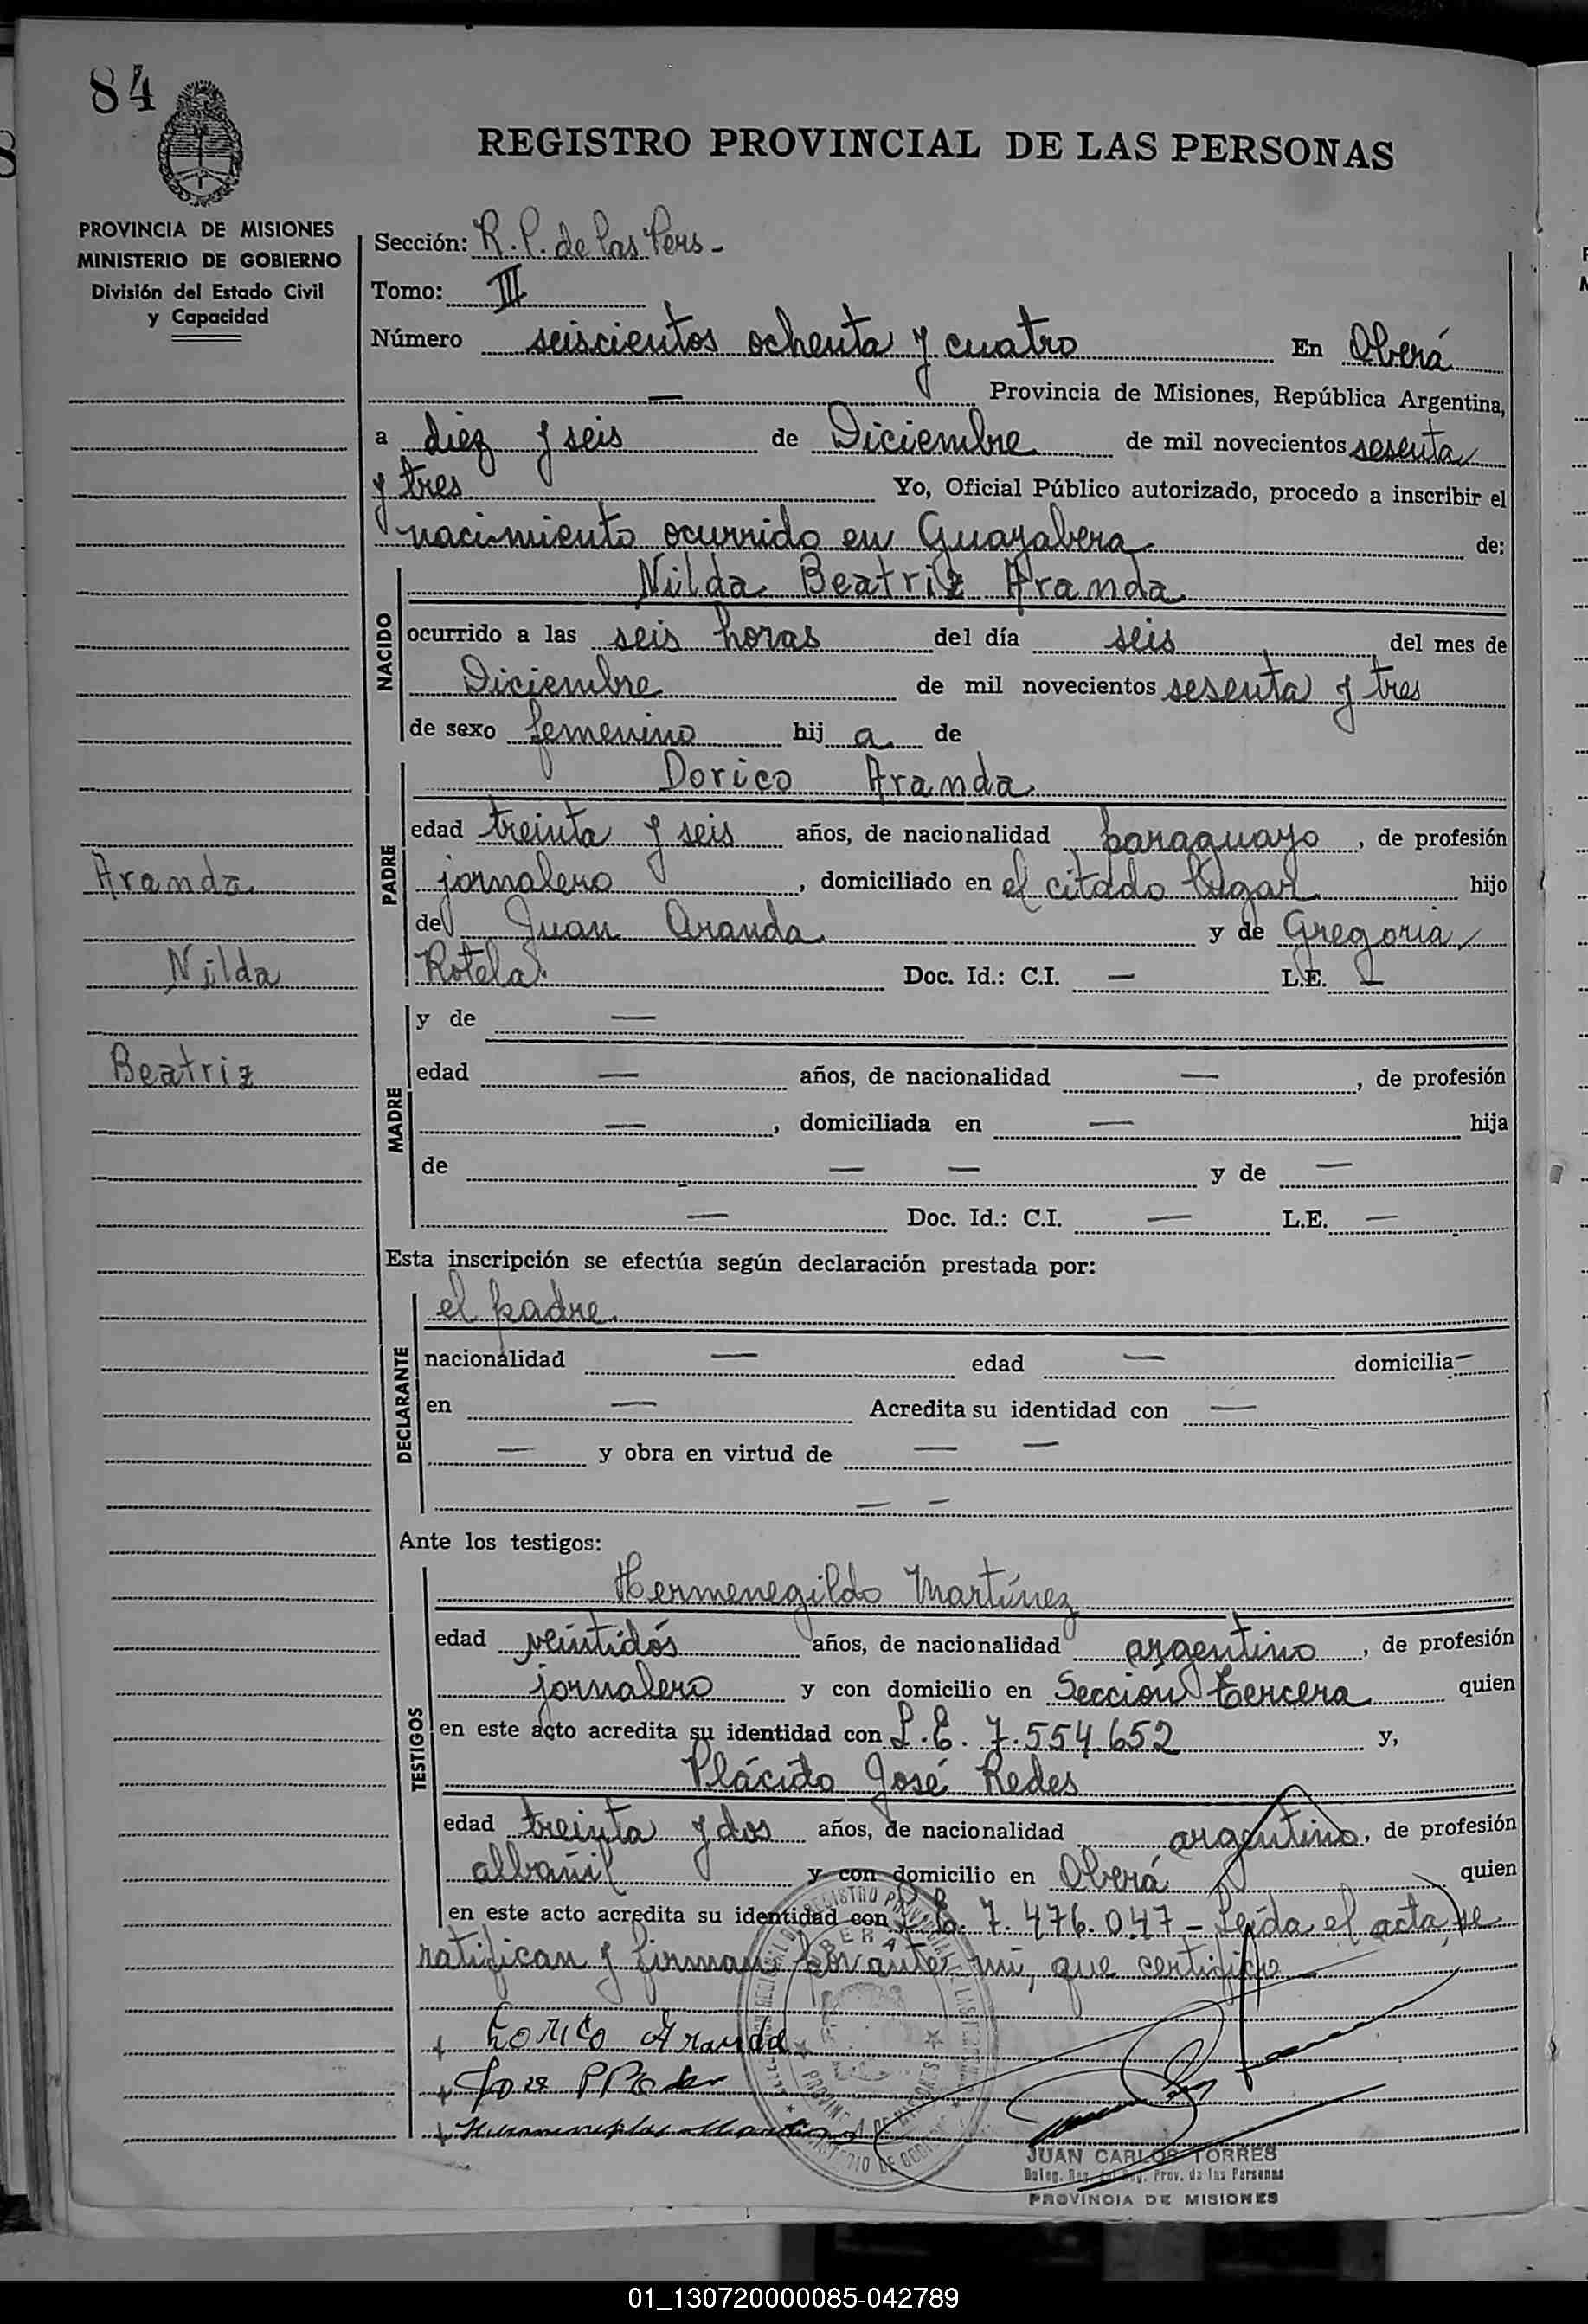 84
REGISTRO PROVINCIAL DE LAS PERSONAS
PROVINCIA DE MISIONES
MINISTERIO DE GOBIERNO
División del Estado Civil
y Capacidad
Sección: R. P. de las Pers -
Tomo: III
Número seiscientos ochenta y cuatro En Oberá
— Provincia de Misiones, República Argentina,
a diez y seis de Diciembre de mil novecientos sesenta
y tres Yo, Oficial Público autorizado, procedo a inscribir el
nacimiento ocurrido en Guayabera de:
NACIDO
Nilda Beatriz Aranda
ocurrido a las seis horas del día seis del mes de
Diciembre de mil novecientos sesenta y tres
de sexo femenino hij a de
PADRE
Dorico Aranda
edad treinta y seis años, de nacionalidad paraguayo, de profesión
jornalero, domiciliado en el citado lugar hijo
de Juan Aranda y de Gregoria
Rotela. Doc. Id.: C.I. — L.E. —
Aranda
Nilda
Beatriz
MADRE
y de —
edad — años, de nacionalidad —, de profesión
—, domiciliada en — hija
de — — y de —
— Doc. Id.: C.I. — L.E. —
Esta inscripción se efectúa según declaración prestada por:
DECLARANTE
el padre
nacionalidad — edad — domicilia—
en — Acredita su identidad con —
— y obra en virtud de — —
— —
Ante los testigos:
TESTIGOS
Hermenegildo Martínez
edad veintidós años, de nacionalidad argentino, de profesión
jornalero y con domicilio en Sección tercera quien
en este acto acredita su identidad con L.E. 7.554.652 y,
Plácido José Redes
edad treinta y dos años, de nacionalidad argentino, de profesión
albañil y con domicilio en Oberá quien
en este acto acredita su identidad con L.E. 7.476.047 - Leída el acta, se
ratifican y firman por ante mí, que certifico
Dorico Aranda
JUAN CARLOS TORRES
Prov. de las Personas
PROVINCIA DE MISIONES
01_130720000085-042789